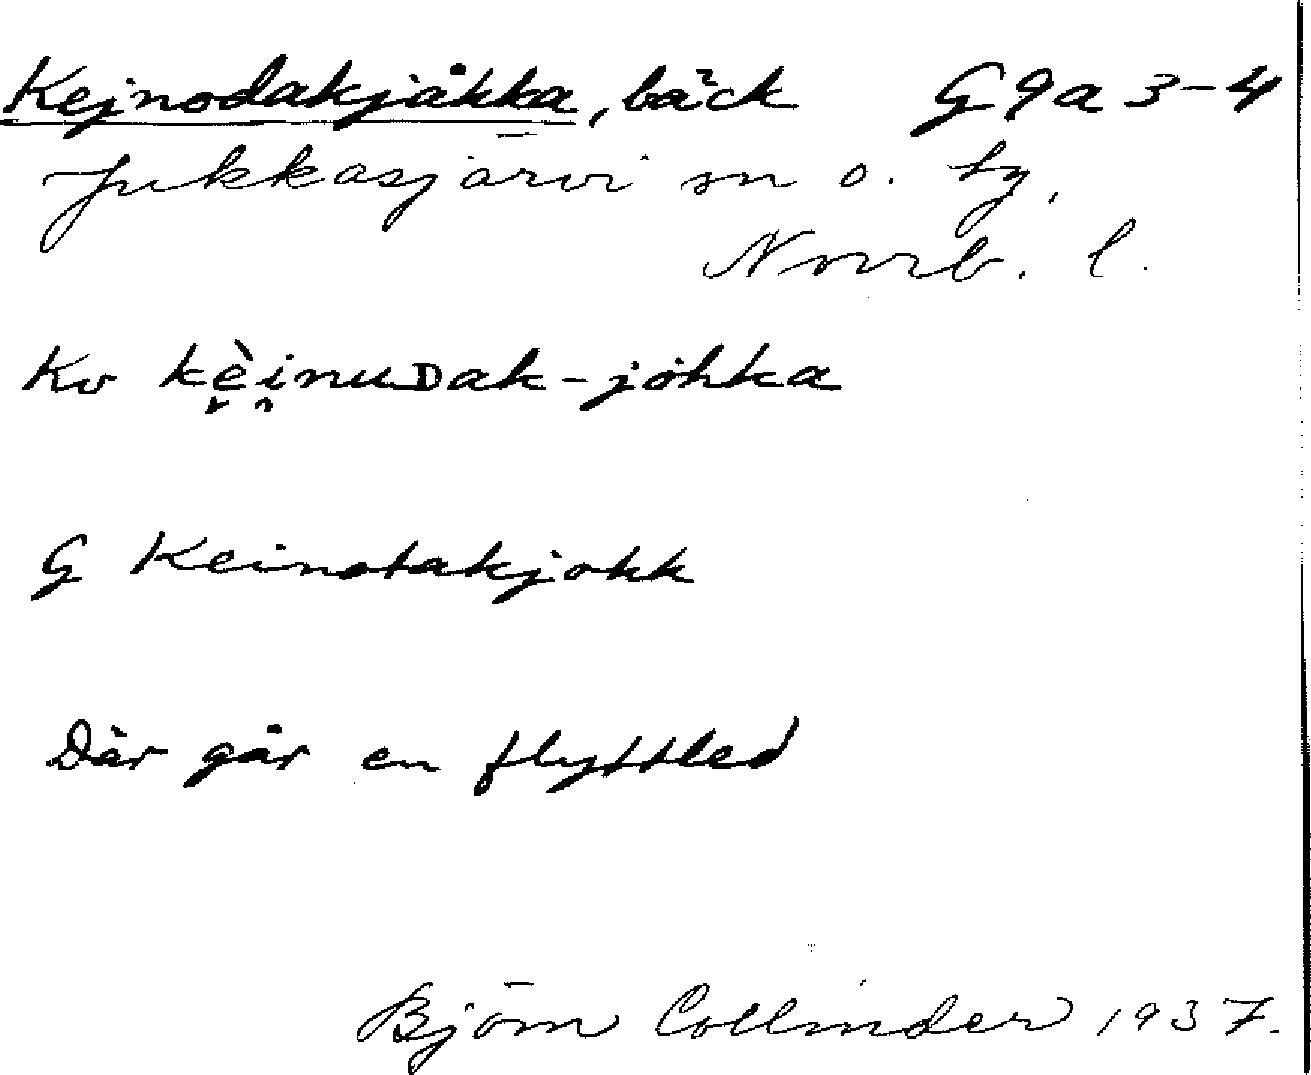 Kejnodakjåkka, bäck G 9 a 3-4
Jukkasjärvi sn o. tg,
Norrb. l.
Kv kẹ̀i̯nuᴅak-jòhka
G Keinotakjokk
Där går en flyttled
Björn Collinder 1937.